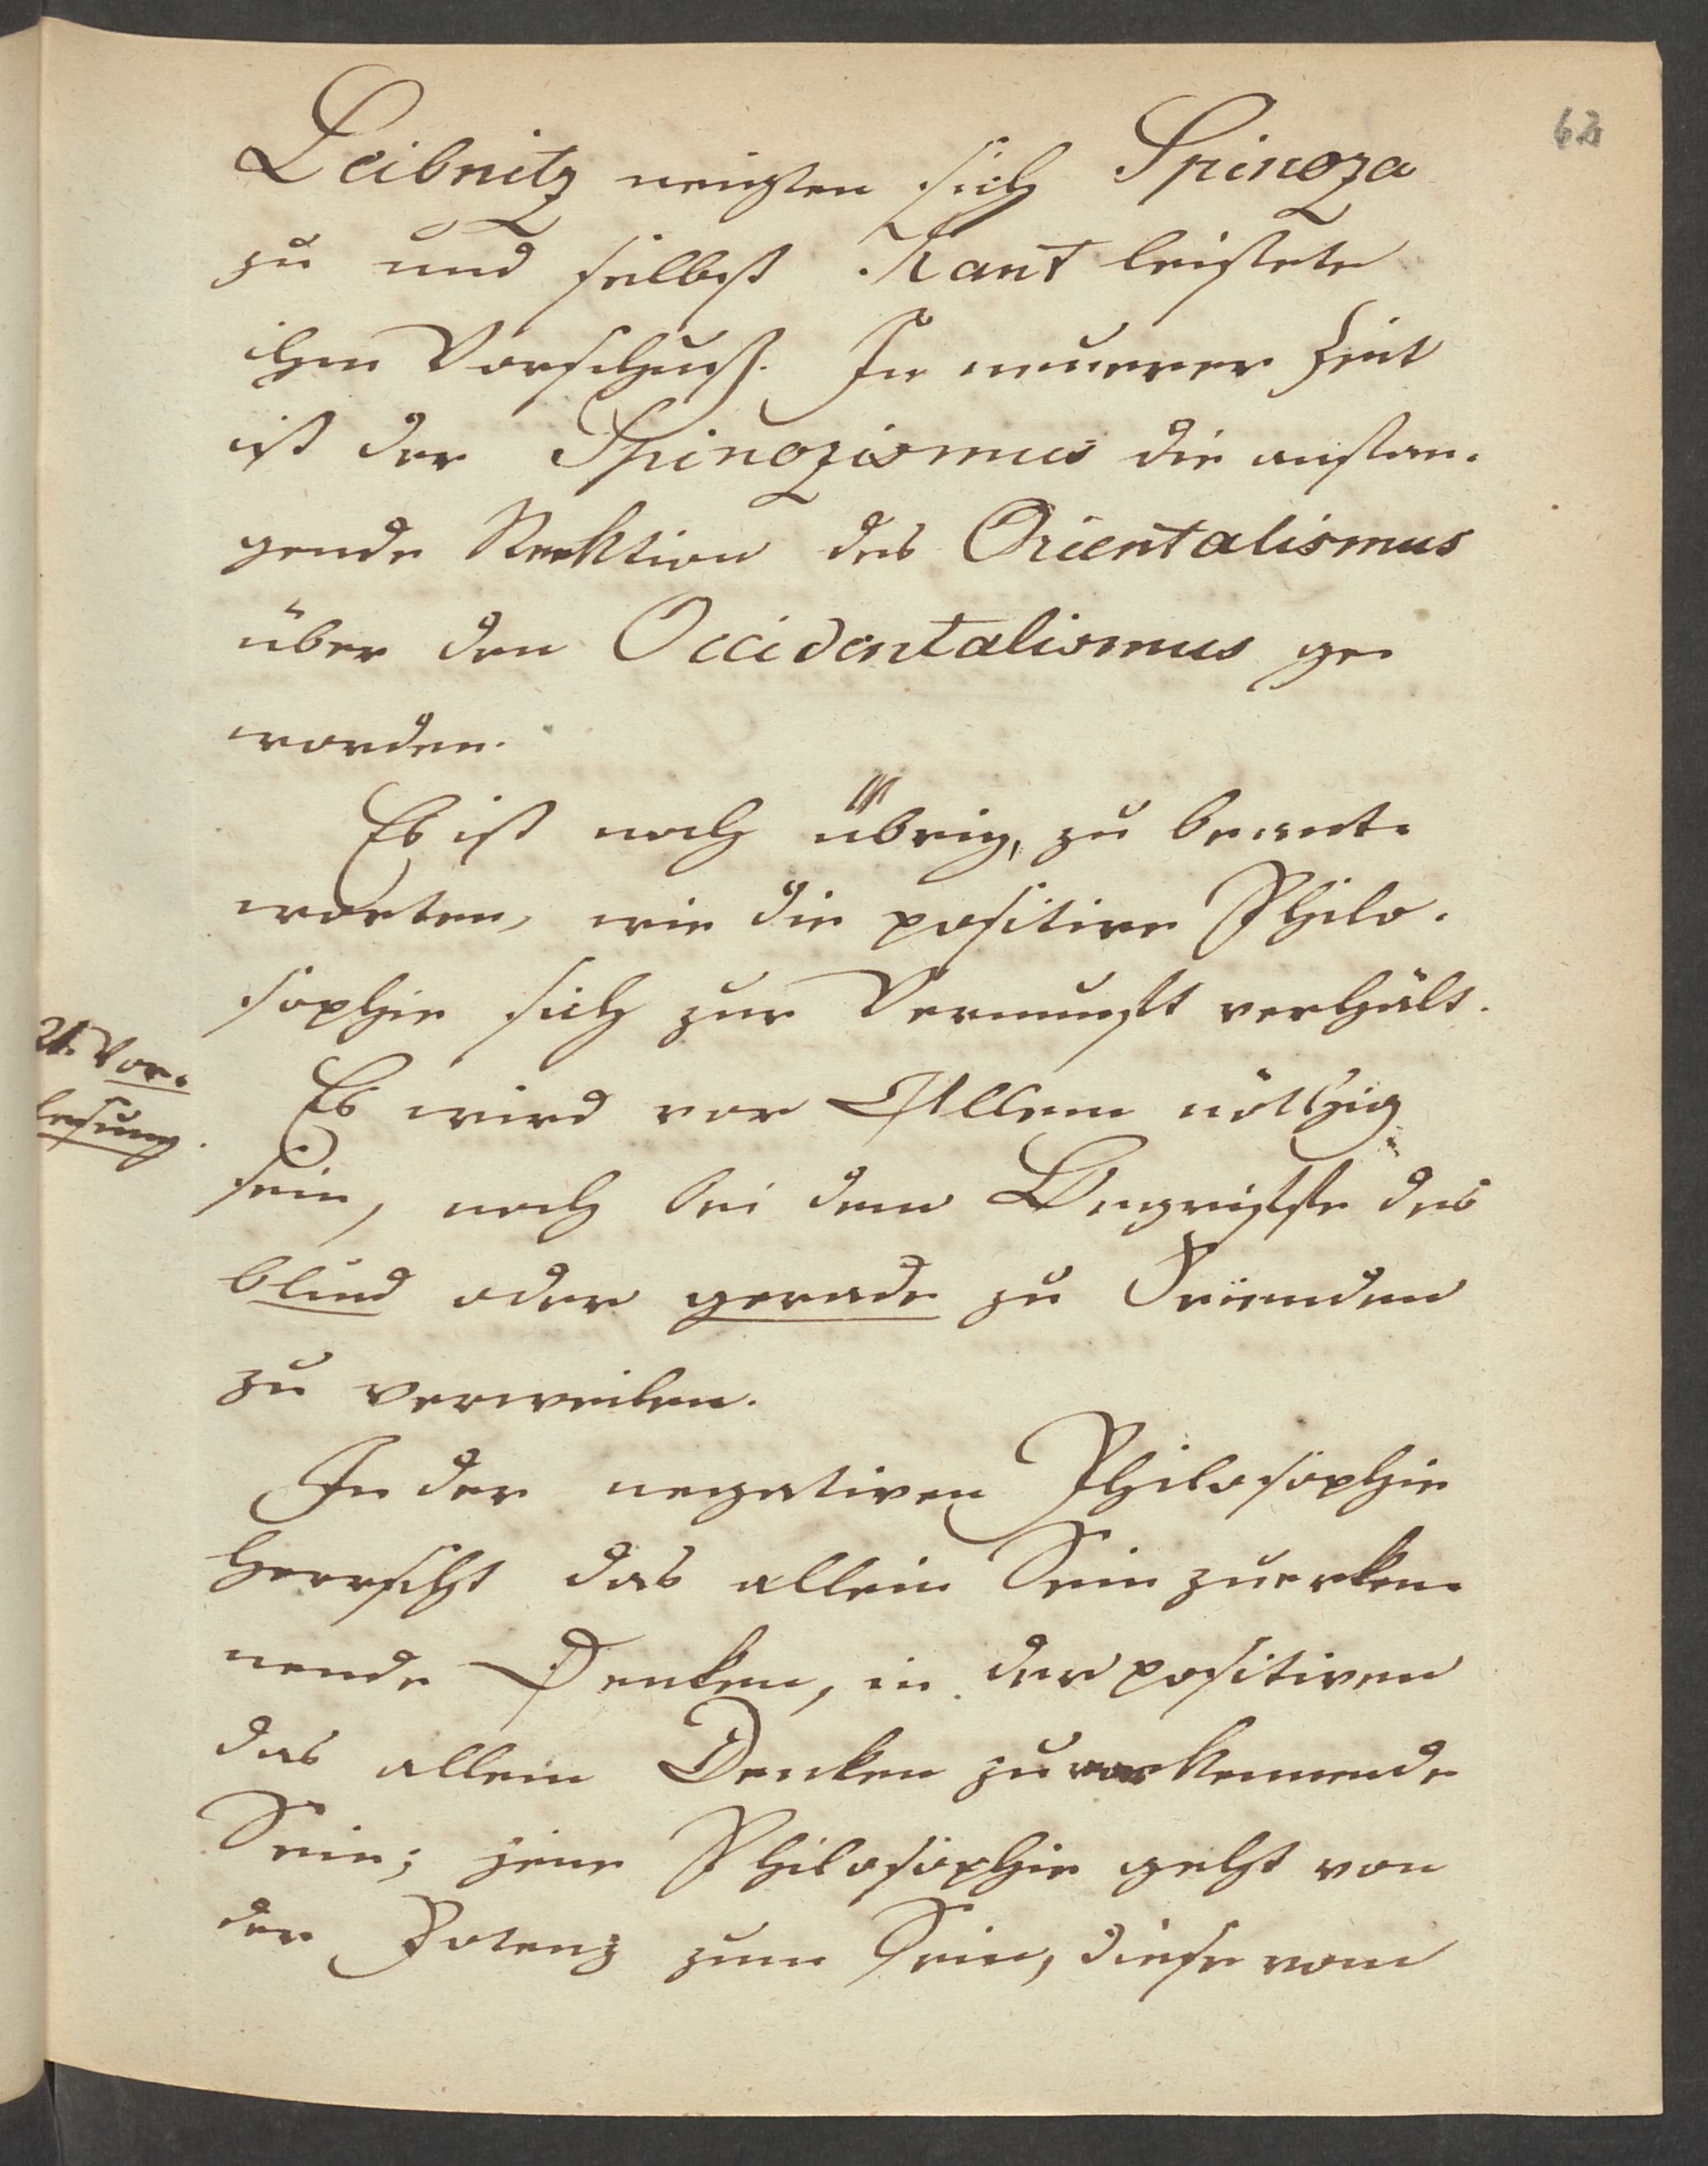 62
Leibnitz neigten sich Spinoza
zu und selbst Kant leistete
ihm Vorschuß. In neuerer Zeit
ist der Spinozismus die
gende Reaktion des Orientalismus
über den Occidentalismus ge
worden.
Es ist noch übrig, zu beant-
worten, wie die positive Philo-
sophie sich zur Vernunft verhält.
21. Vor-
lesung.
Es wird vor Allem nöthig
sein, noch bei dem Begriffe des
blind oder gerade zu Seienden
zu verweilen.
In der negativen Philosophie
herrscht das allein Sein zuerken-
nende Denken, in der positiven
das allem Denken zuvorkommende
Sein; jene Philosophie geht von
der Potenz zum Sein, diese vom